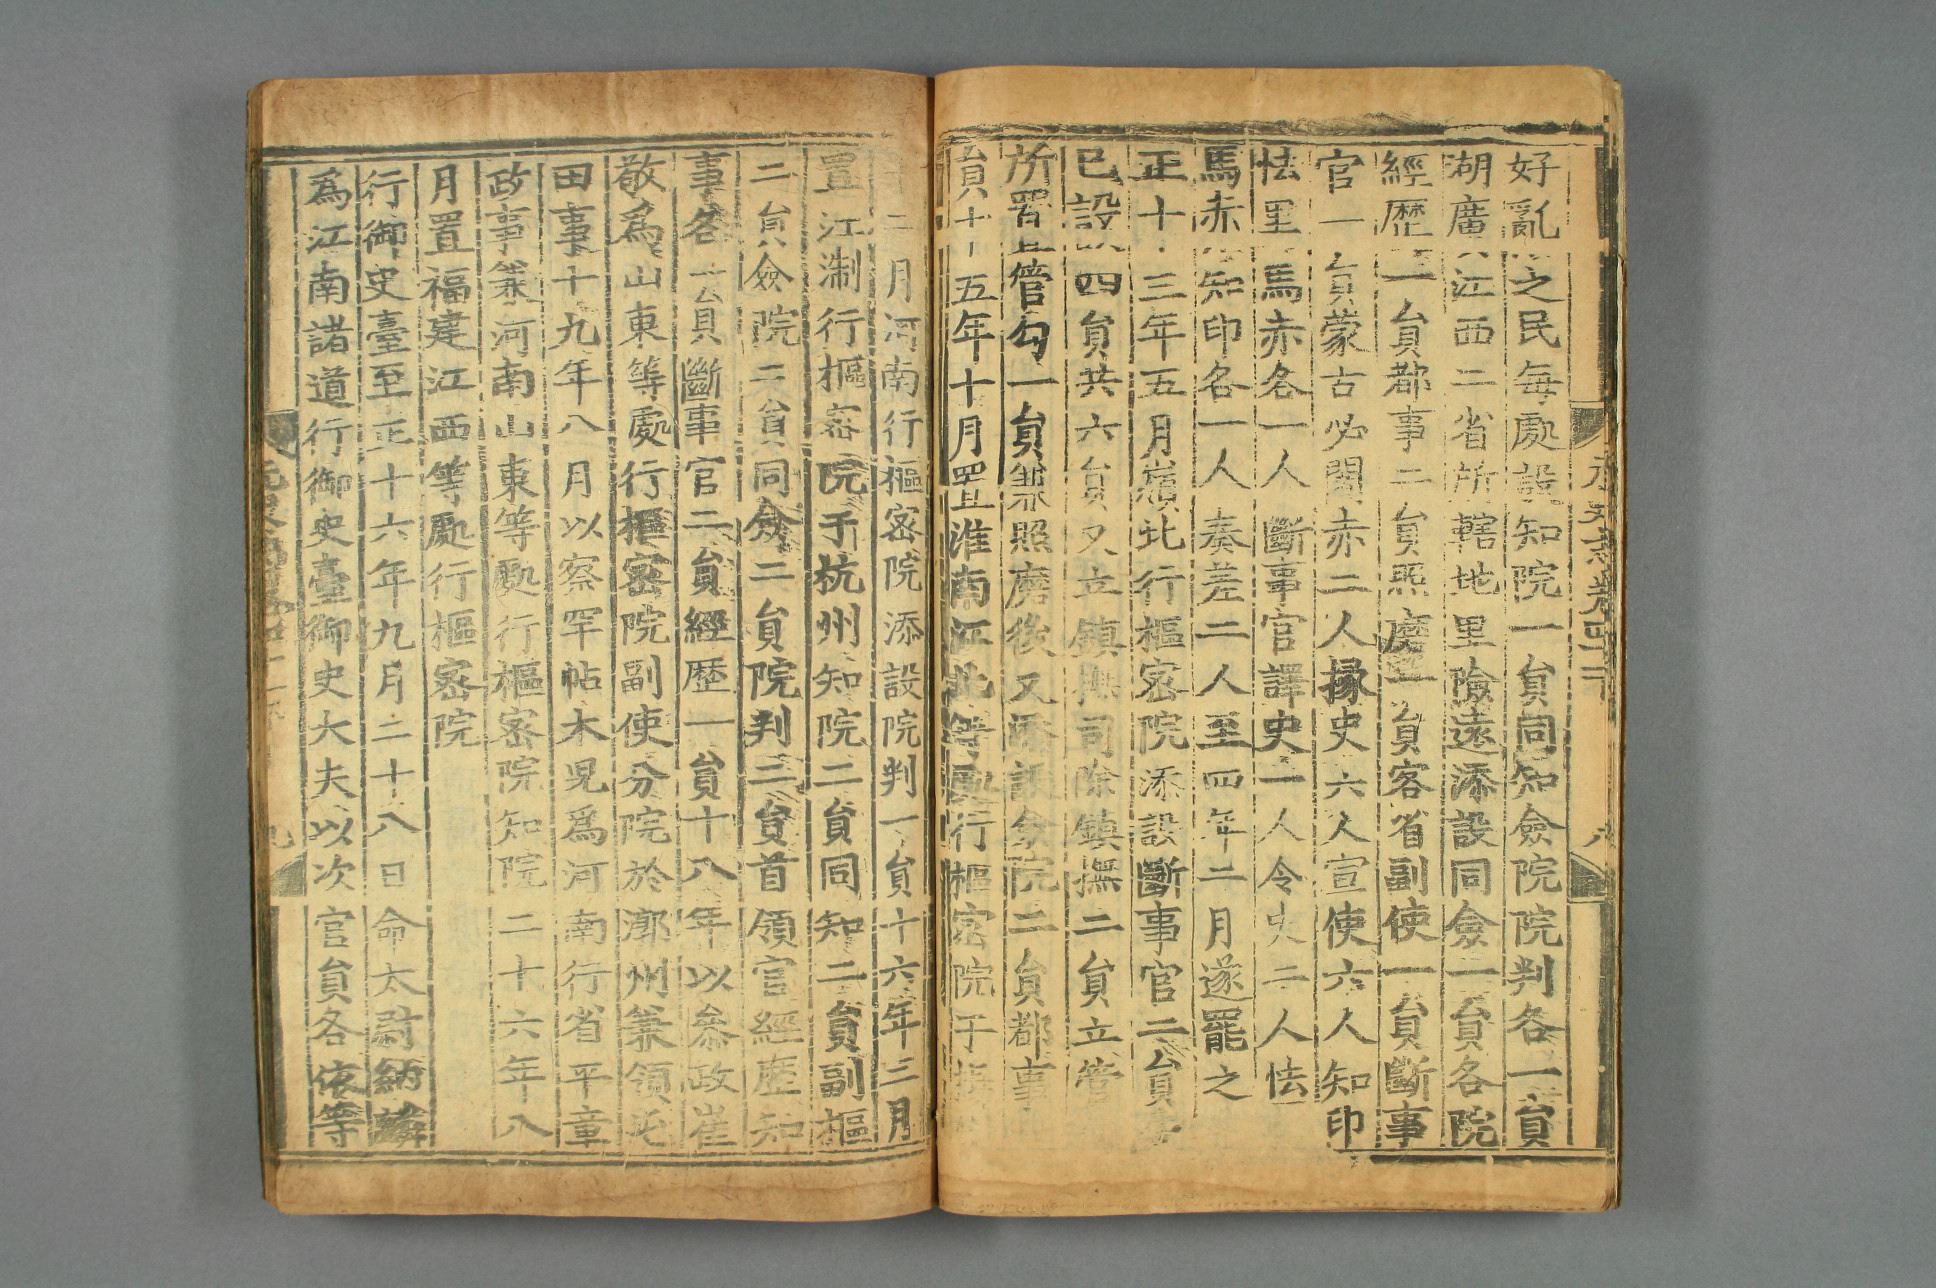 好亂之民每處設知院一貟同知僉院院判各一貟
湖廣江西二省所轄地里險遠添設同僉一貟各院
經歷一貟都事二貟照磨一貟客省副使一貟斷事
官一貟蒙古必闍赤二人掾史六人宣使六人知印
怯里馬赤各一人斷事官譯史一人令史二人怯
馬赤知印各一人奏差二人至四年二月遂罷之
正十三年五月嶺北行樞密院添設斷事官二貟
已設四貟共六貟又立鎮撫司除鎮撫二貟立管
所署管勾一貟兼照磨後又添設僉院二貟都事
貟十五年十月置淮南江北等處行樞密院于揚
二月河南行樞密院添設院判一貟十六年三月
置江淛行樞密院于杭州知院二貟同知二貟副樞
二貟僉院二貟同僉二貟院判二貟首領官經歷知
事各一貟斷事官二貟經歷一貟十八年以叅政崔
敬爲山東等處行樞密院副使分院於漷州兼領屯
田事十九年八月以察罕帖木児爲河南行省平章
政事兼河南山東等處行樞密院知院二十六年八
月置福建江西等處行樞密院
行御史臺至正十六年九月二十八日命太尉納麟
爲江南諸道行御史臺御史大夫以次官貟各依等